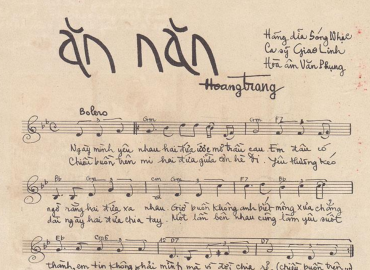 ăn năn
Hoàng Trang
Hãng dĩa Sóng Nhạc
Ca sỹ Giao Linh
Hòa âm Văn Phụng
Bolero
Gm Cm Gm
Ngày mình yêu nhau hai đứa ước mơ thầu sau Em đâu có
Chiều buồn trên mi hai đứa giữa ân hề đi Yêu thương kéo
Bb Gm Gm
ngỡ rằng hai đứa xa nhau Gió buồn không anh biết mộng xưa chẳng
dài ngày hai đứa chia tay Một lần bên nhau cũng làm yêu suốt
Eb Cm6 D7
thành em tin không phải mình mà vì đời chia rẽ (Chiều buồn trên